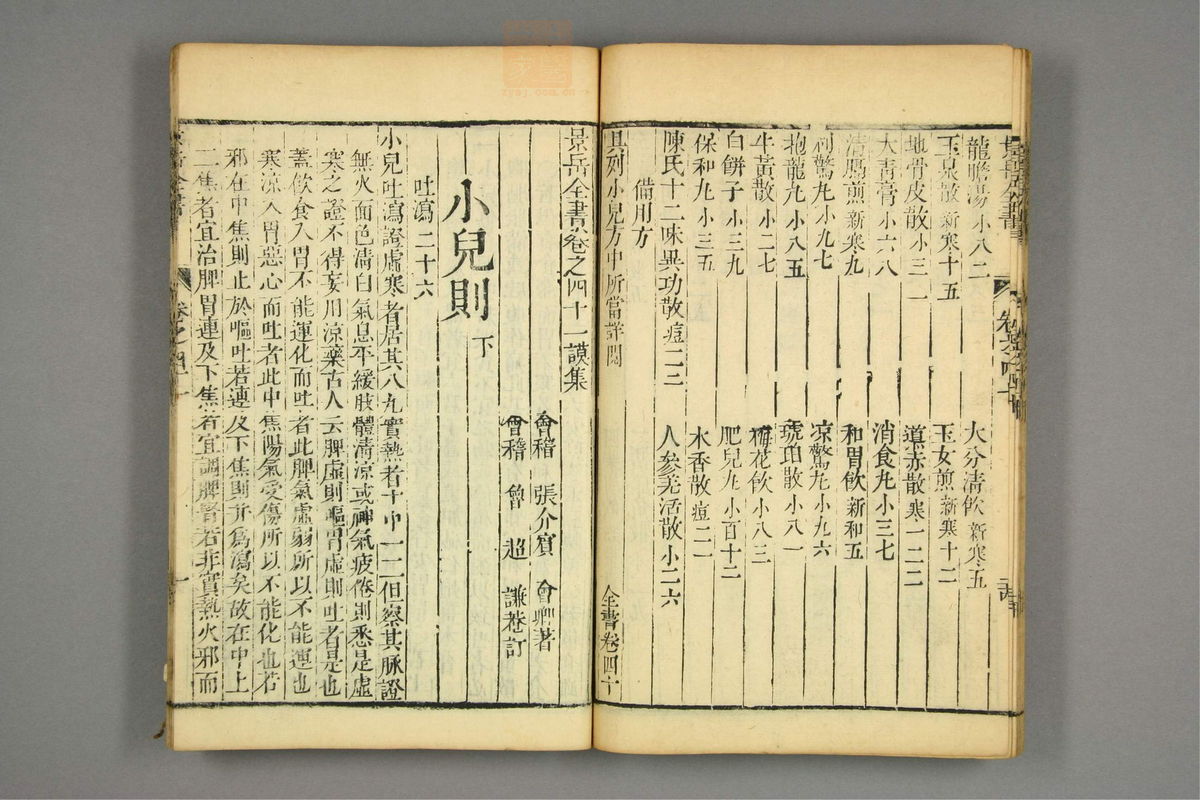 龍膽湯 小八二
大分清飲 新寒五
玉泉散 新寒十五
玉女煎 新寒十二
地骨皮散 小三一
導赤散 寒一二二
大青膏 小六八
消食丸 小三七
清膈煎 新寒九
和胃飲 新和五
利驚丸 小九七
凉驚丸 小九六
抱龍丸 小八五
琥珀散 小八一
牛黃散 小二七
梅花飲 小八三
白餅子 小三九
肥兒丸 小百十二
保和丸 小三五
木香散 痘二一
陳氏十二味異功散 痘二三
人參羌活散 小二六
備用方
且列小兒方中所當詳閱
全書卷四十
景岳全書卷之四十一謨集
會稽 張介賓 會卿著
會稽 曾 超 謙菴訂
小兒則 下
吐瀉二十六
小兒吐瀉證虛寒者居其八九實熱者十中一二但察其脉證
無火面色清白氣息平緩肢體清凉或神氣疲倦則悉是虛
寒之證不得妄用凉藥古人云脾虛則嘔胃虛則吐者是也
蓋飲食入胃不能運化而吐者此脾氣虛弱所以不能運也
寒凉入胃惡心而吐者此中焦陽氣受傷所以不能化也若
邪在中焦則止於嘔吐若連及下焦則并爲瀉矣故在中上
二焦者宜治脾胃連及下焦者宜調脾腎若非實熱火邪而